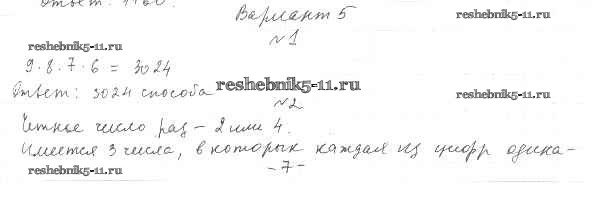 Ответ: 1160.
Вариант 5
reshebnik5-11.ru
№1
reshebnik5-11.ru
9·8·7·6 = 3024
reshebnik5-11.ru
Ответ: 3024 способа
reshebnik5-11.ru
№2
Четное число раз – 2 или 4.
Имеется 3 числа, в которых каждая из цифр одина-
-7-
reshebnik5-11.ru